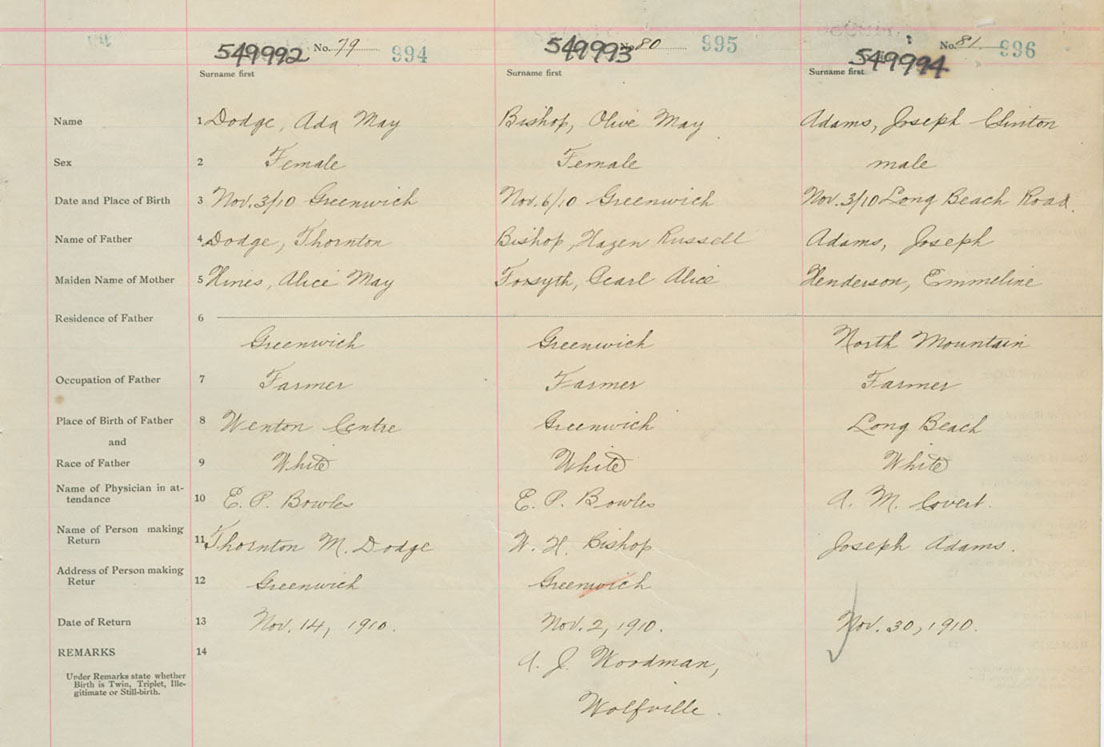 549992 No. 79 994 549993 No. 80 995 549994 No. 81 996
Surname first Surname first Surname first
Name 1 Dodge, Ada May Bishop, Olive May Adams, Joseph Clinton
Sex 2 Female Female male
Date and Place of Birth 3 Nov. 3/10 Greenwich Nov. 6/10 Greenwich Nov. 3/10 Long Beach Road.
Name of Father 4 Dodge, Thornton Bishop, Hazen Russell Adams, Joseph
Maiden Name of Mother 5 Hines, Alice May Forsyth, Pearl Alice Henderson, Emmeline
Residence of Father 6
Greenwich Greenwich North Mountain
Occupation of Father 7 Farmer Farmer Farmer
Place of Birth of Father 8 Centre Greenwich Long Beach
and
Race of Father 9 White White White
Name of Physician in at-
tendance 10 E. P. Bowles E. P. Bowles A. M. Covert.
Name of Person making
Return 11 Thornton M. Dodge W. H. Bishop Joseph Adams.
Address of Person making
Retur 12 Greenwich Greenwich
Date of Return 13 Nov. 14, 1910. Nov. 2, 1910. Nov. 30, 1910.
REMARKS 14
A. J. Woodman,
Under Remarks state whether
Birth is Twin, Triplet, Ille-
gitimate or Still-birth.
Wolfville.